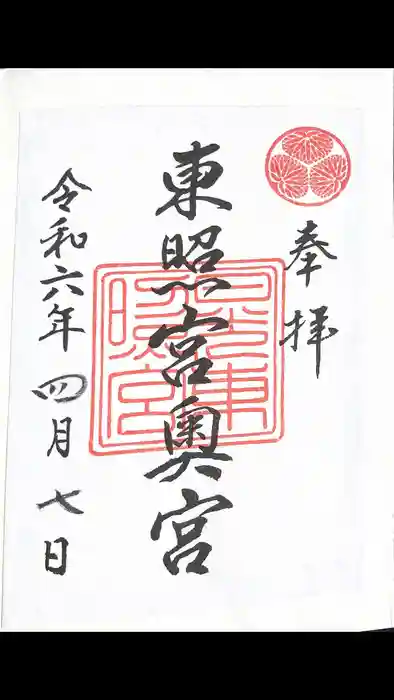 奉拝
東照宮奥宮
令和六年四月七日